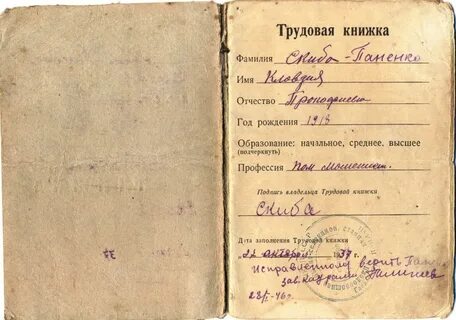 Трудовая книжка
Фамилия Скиба-Паненко
Имя Клавдия
Отчество Прокофиевна
Год рождения 1918
Образование: начальное, среднее, высшее
(подчеркнуть)
Профессия пом
Подпись владельца Трудовой книжки
Скиба
Дата заполнения Трудовой книжки
22 октября 1937 г.
Исправленному верить
зав. кадрами
28/I-46г.